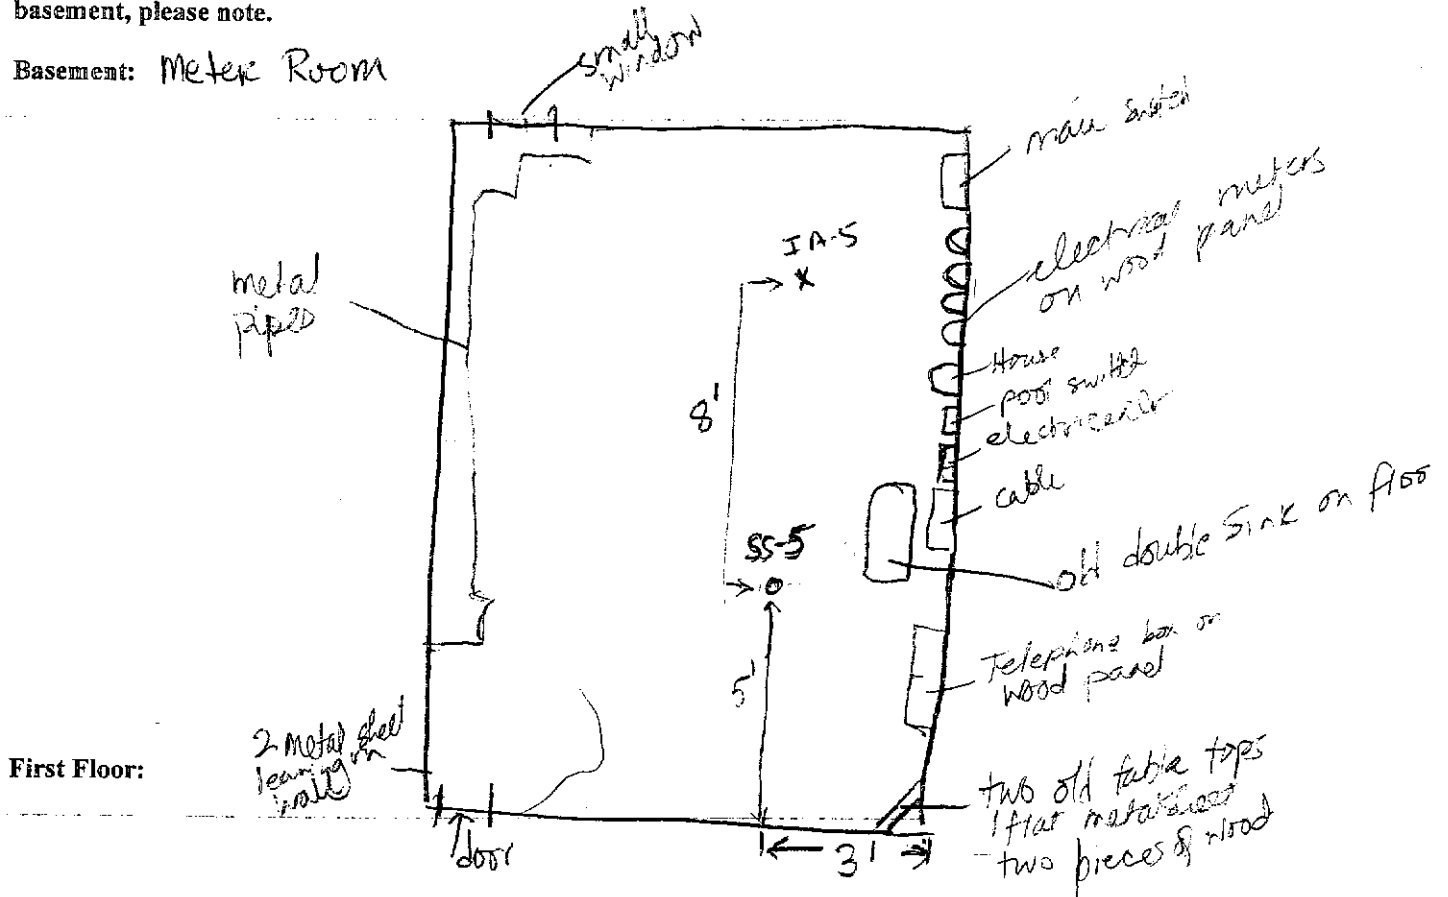 basement, please note.
Basement: Meter Room
small
window
main
electrical meters
on wood panel
IA-5
metal
pipes
House
pool switch
8'
cable
SS-5
old double sink on floo
5'
Telephone box on
wood panel
2 metal sheet
leaning on
wall
First Floor:
two old table tops
1 flat metal sheet
two pieces of wood
door
3'